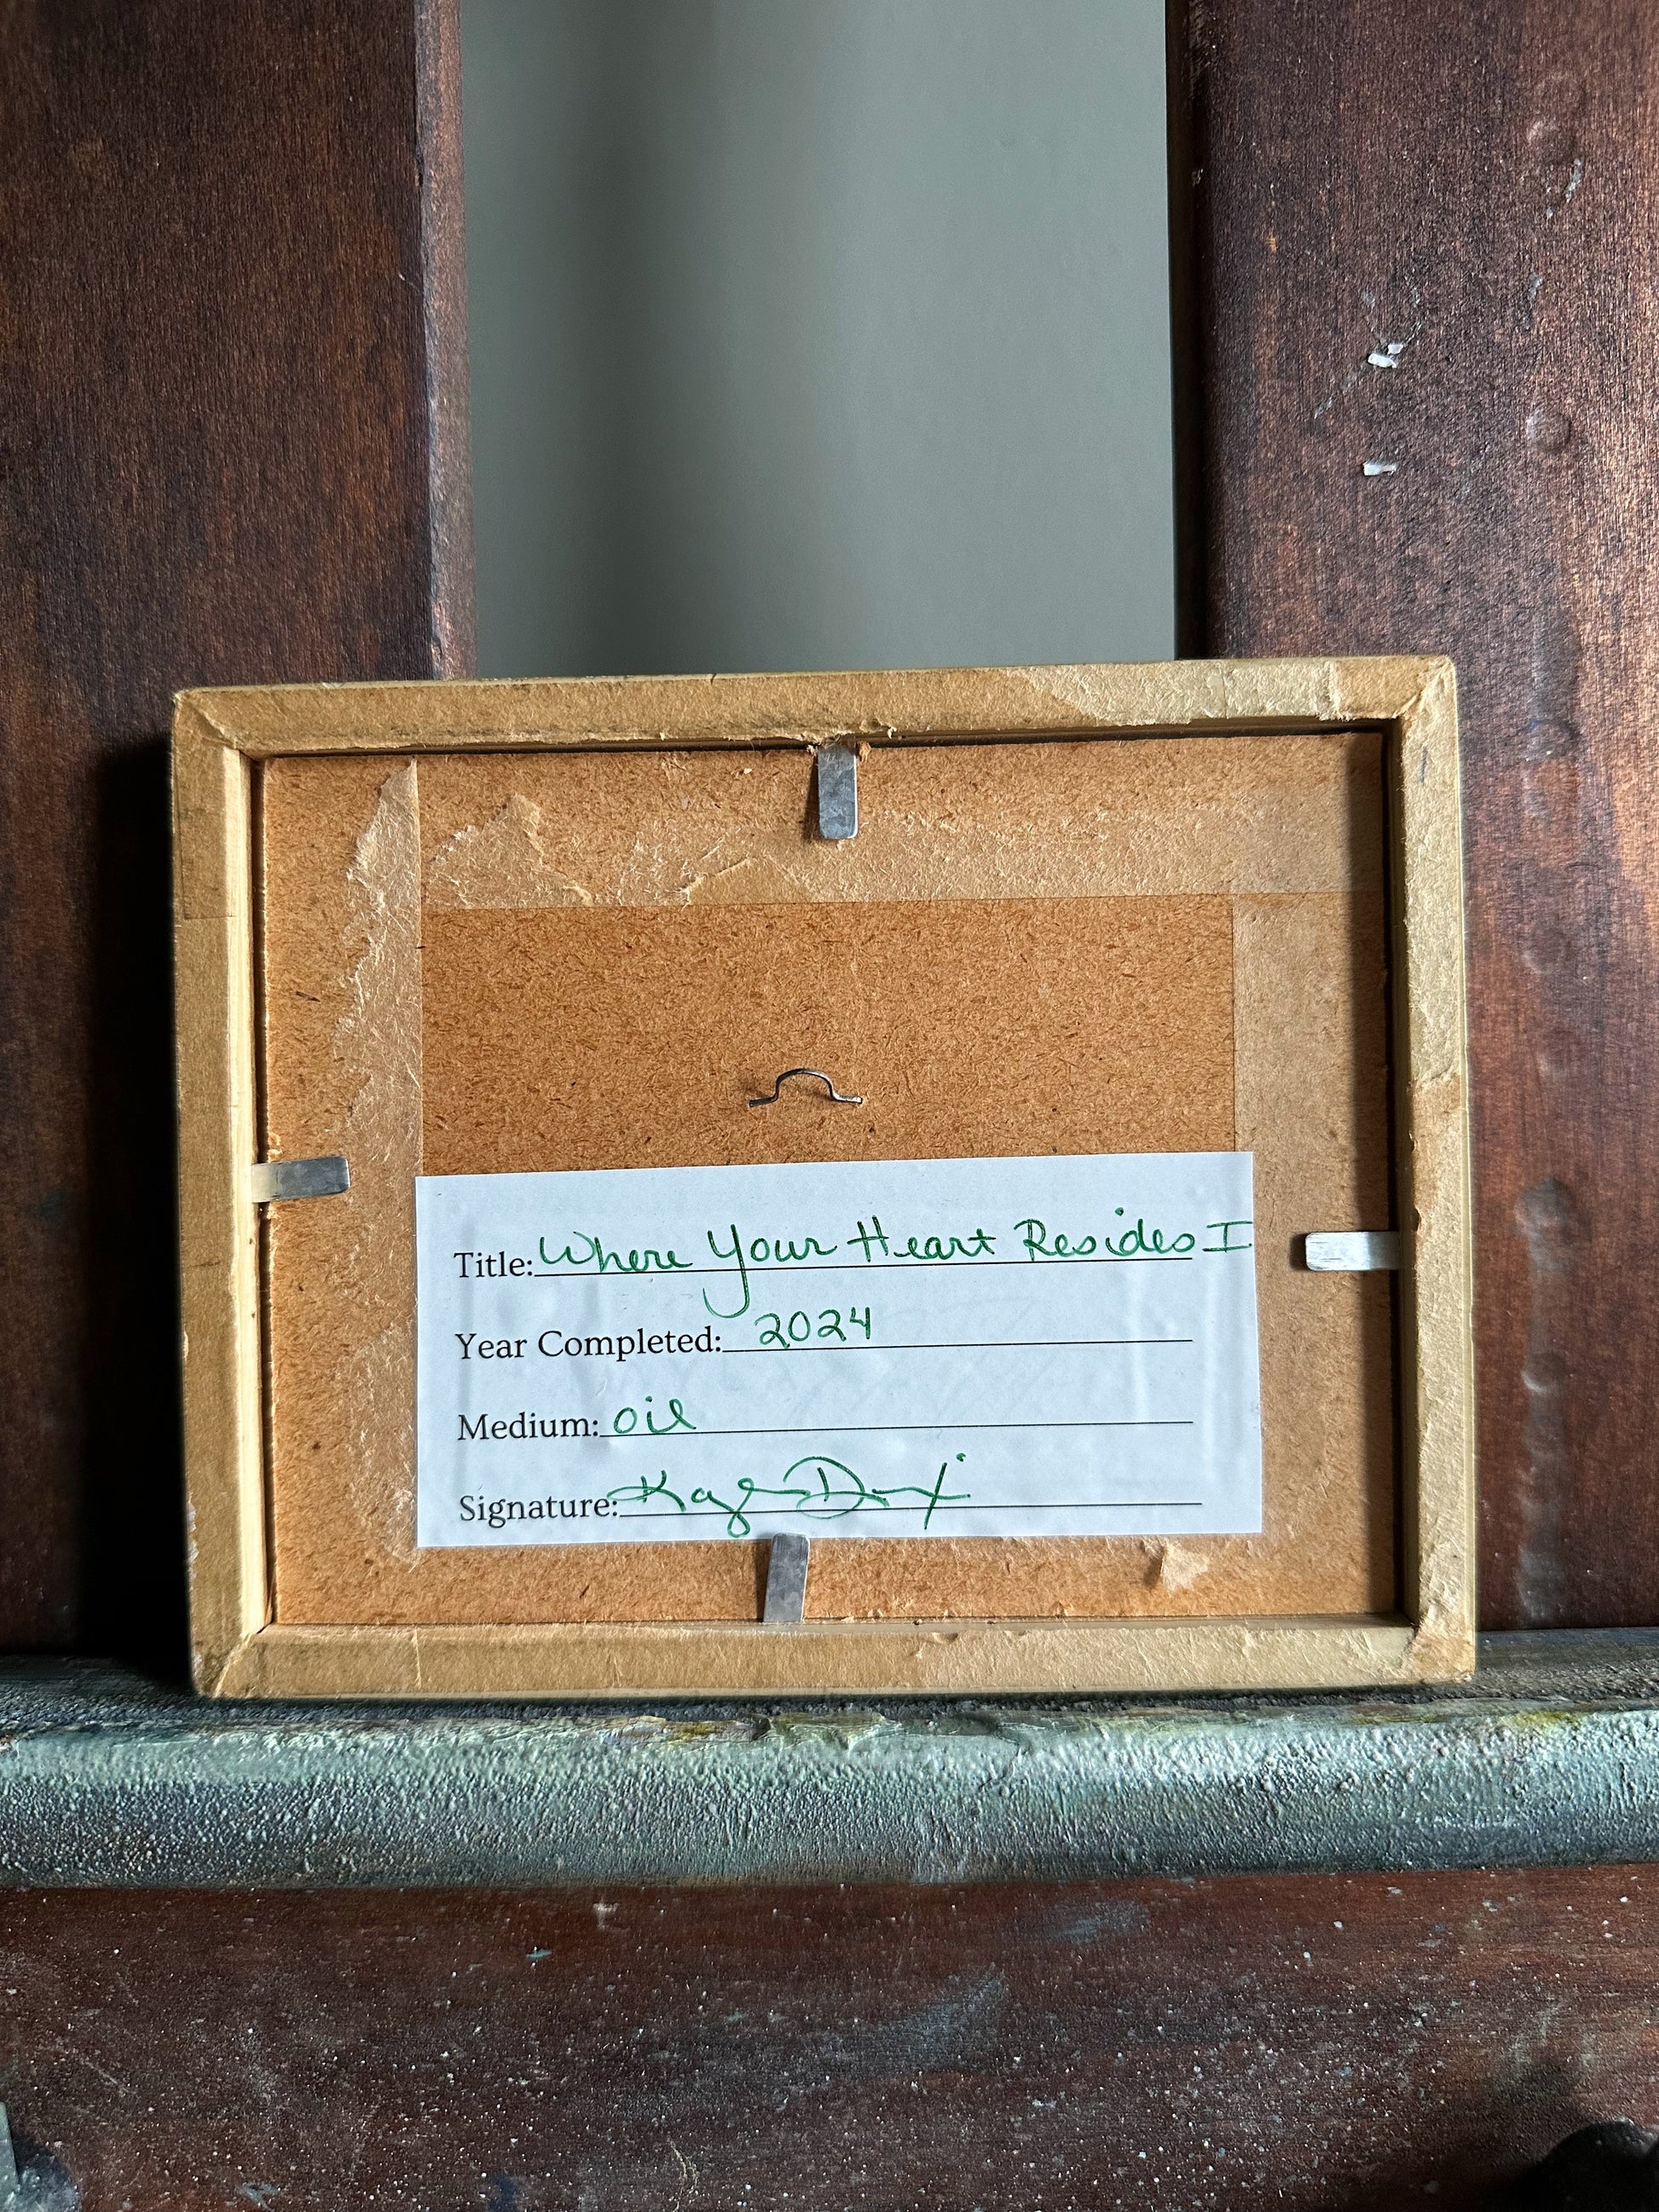 Title: Where Your Heart Resides I
Year Completed: 2024
Medium: oil
Signature: